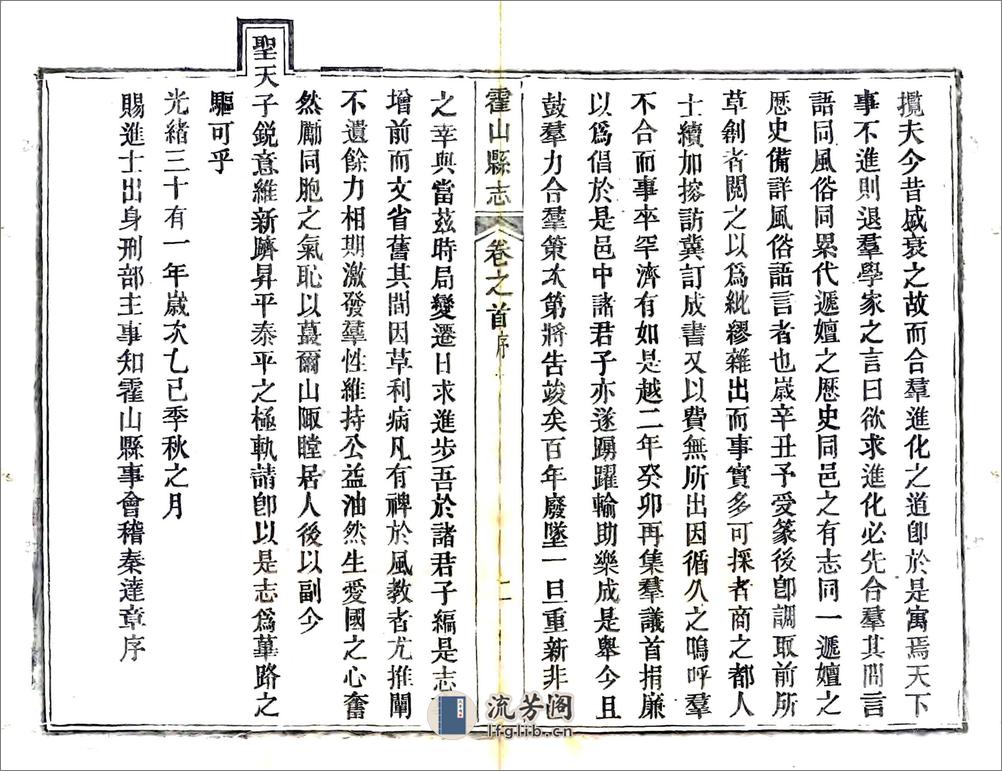 攬夫今昔盛衰之故而合羣進化之道卽於是寓焉天下
事不進則退羣學家之言曰欲求進化必先合羣其間言
語同風俗同累代遞嬗之歷史同邑之有志同一遞嬗之
歷史備詳風俗語言者也歲辛丑予受篆後卽調取前所
草創者閱之以爲紕繆雜出而事實多可採者商之都人
士續加搜訪冀訂成書又以費無所出因循久之嗚呼羣
不合而事卒罕濟有如是越二年癸卯再集羣議首捐廉
以爲倡於是邑中諸君子亦遂踴躍輸助樂成是舉今且
鼓羣力合羣策次第將告竣矣百年廢墜一旦重新非
霍山縣志 卷之首 序 二
之幸與當茲時局變遷日求進步吾於諸君子編是志
增前而文省舊其間因草利病凡有裨於風教者尤推闡
不遺餘力相期激發羣性維持公益油然生愛國之心奮
然勵同胞之氣恥以蕞爾山陬瞠居人後以副今
聖天子銳意維新躋昇平泰平之極軌請卽以是志爲蓽路之
驅可乎
光緒三十有一年歲次乙巳季秋之月
賜進士出身刑部主事知霍山縣事會稽秦達章序
流芳阁
lfglib.cn